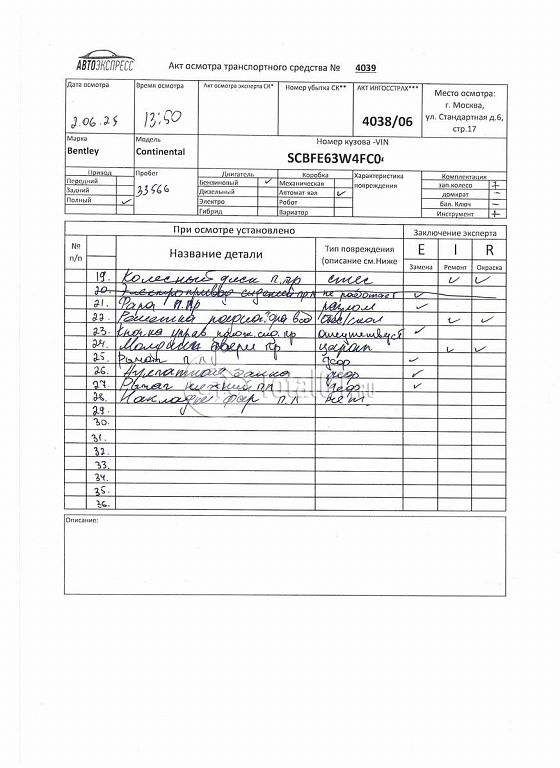 АВТОЭКСПРЕСС
Акт осмотра транспортного средства № 4039
Дата осмотра
2.06.25
Время осмотра
13:50
Акт осмотра эксперта СК*
Номер убытка СК**
АКТ ИНГОССТРАХ***
4038/06
Место осмотра:
г. Москва,
ул. Стандартная д.6,
стр.17
Марка
Bentley
Модель
Continental
Номер кузова -VIN
SCBFE63W4FC0
Привод
Передний
Задний
Полный ✓
Пробег
33566
Двигатель
Бензиновый ✓
Дизельный
Электро
Гибрид
Коробка
Механическая
Автомат кая ✓
Робот
Вариатор
Характеристика
повреждения
Комплектация
зап.колесо +
домкрат –
бал. Ключ –
Инструмент +
При осмотре установлено
Заключение эксперта
№
п/п
Название детали
Тип повреждения
(описание см.Ниже
E I R
Замена Ремонт Окраска
19. Колесный диск п.пр ✓ ✓
20. не работает ✓
21. Фара п.пр разлом ✓
22. ✓ ✓
23. отсутствует ✓
24. Молдинг двери пр царап ✓ ✓
25. Рычаг п.п деф ✓
26. деф ✓
27. Рычаг нижний пп деф ✓
28. фар п.п
29.
30.
31.
32.
33.
34.
35.
36.
Описание: